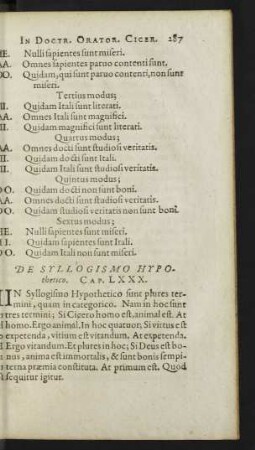 IN DOCTR. ORATOR. CICER. 287
HE. Nulli sapientes sunt miseri.
AA. Omnes sapientes paruo contenti sunt.
OO. Quidam, qui sunt paruo contenti, non sunt
miseri.
Tertius modus;
II. Quidam Itali sunt literati.
AA. Omnes Itali sunt magnifici.
II. Quidam magnifici sunt literati.
Quartus modus;
AA. Omnes docti sunt studiosi veritatis.
II. Quidam docti sunt Itali.
II. Quidam Itali sunt studiosi veritatis.
Quintus modus;
OO. Quidam docti non sunt boni.
AA. Omnes docti sunt studiosi veritatis.
OO. Quidam studiosi veritatis non sunt boni.
Sextus modus;
HE. Nulli sapientes sunt miseri.
II. Quidam sapientes sunt Itali.
OO. Quidam Itali non sunt miseri.
DE SYLLOGISMO HYPO-
thetico. CAP. LXXX.
IN Syllogismo Hypothetico sunt plures ter-
mini, quam in categorico. Nam in hoc sunt
tres termini; Si Cicero homo est, animal est. At
homo. Ergo animal. In hoc quatuor; Si virtus est
expetenda, vitium est vitandum. At expetenda.
Ergo vitandum. Et plures in hoc; Si Deus est bo-
nus, anima est immortalis, & sunt bonis sempi-
terna præmia constituta. At primum est. Quod
sequitur igitur.